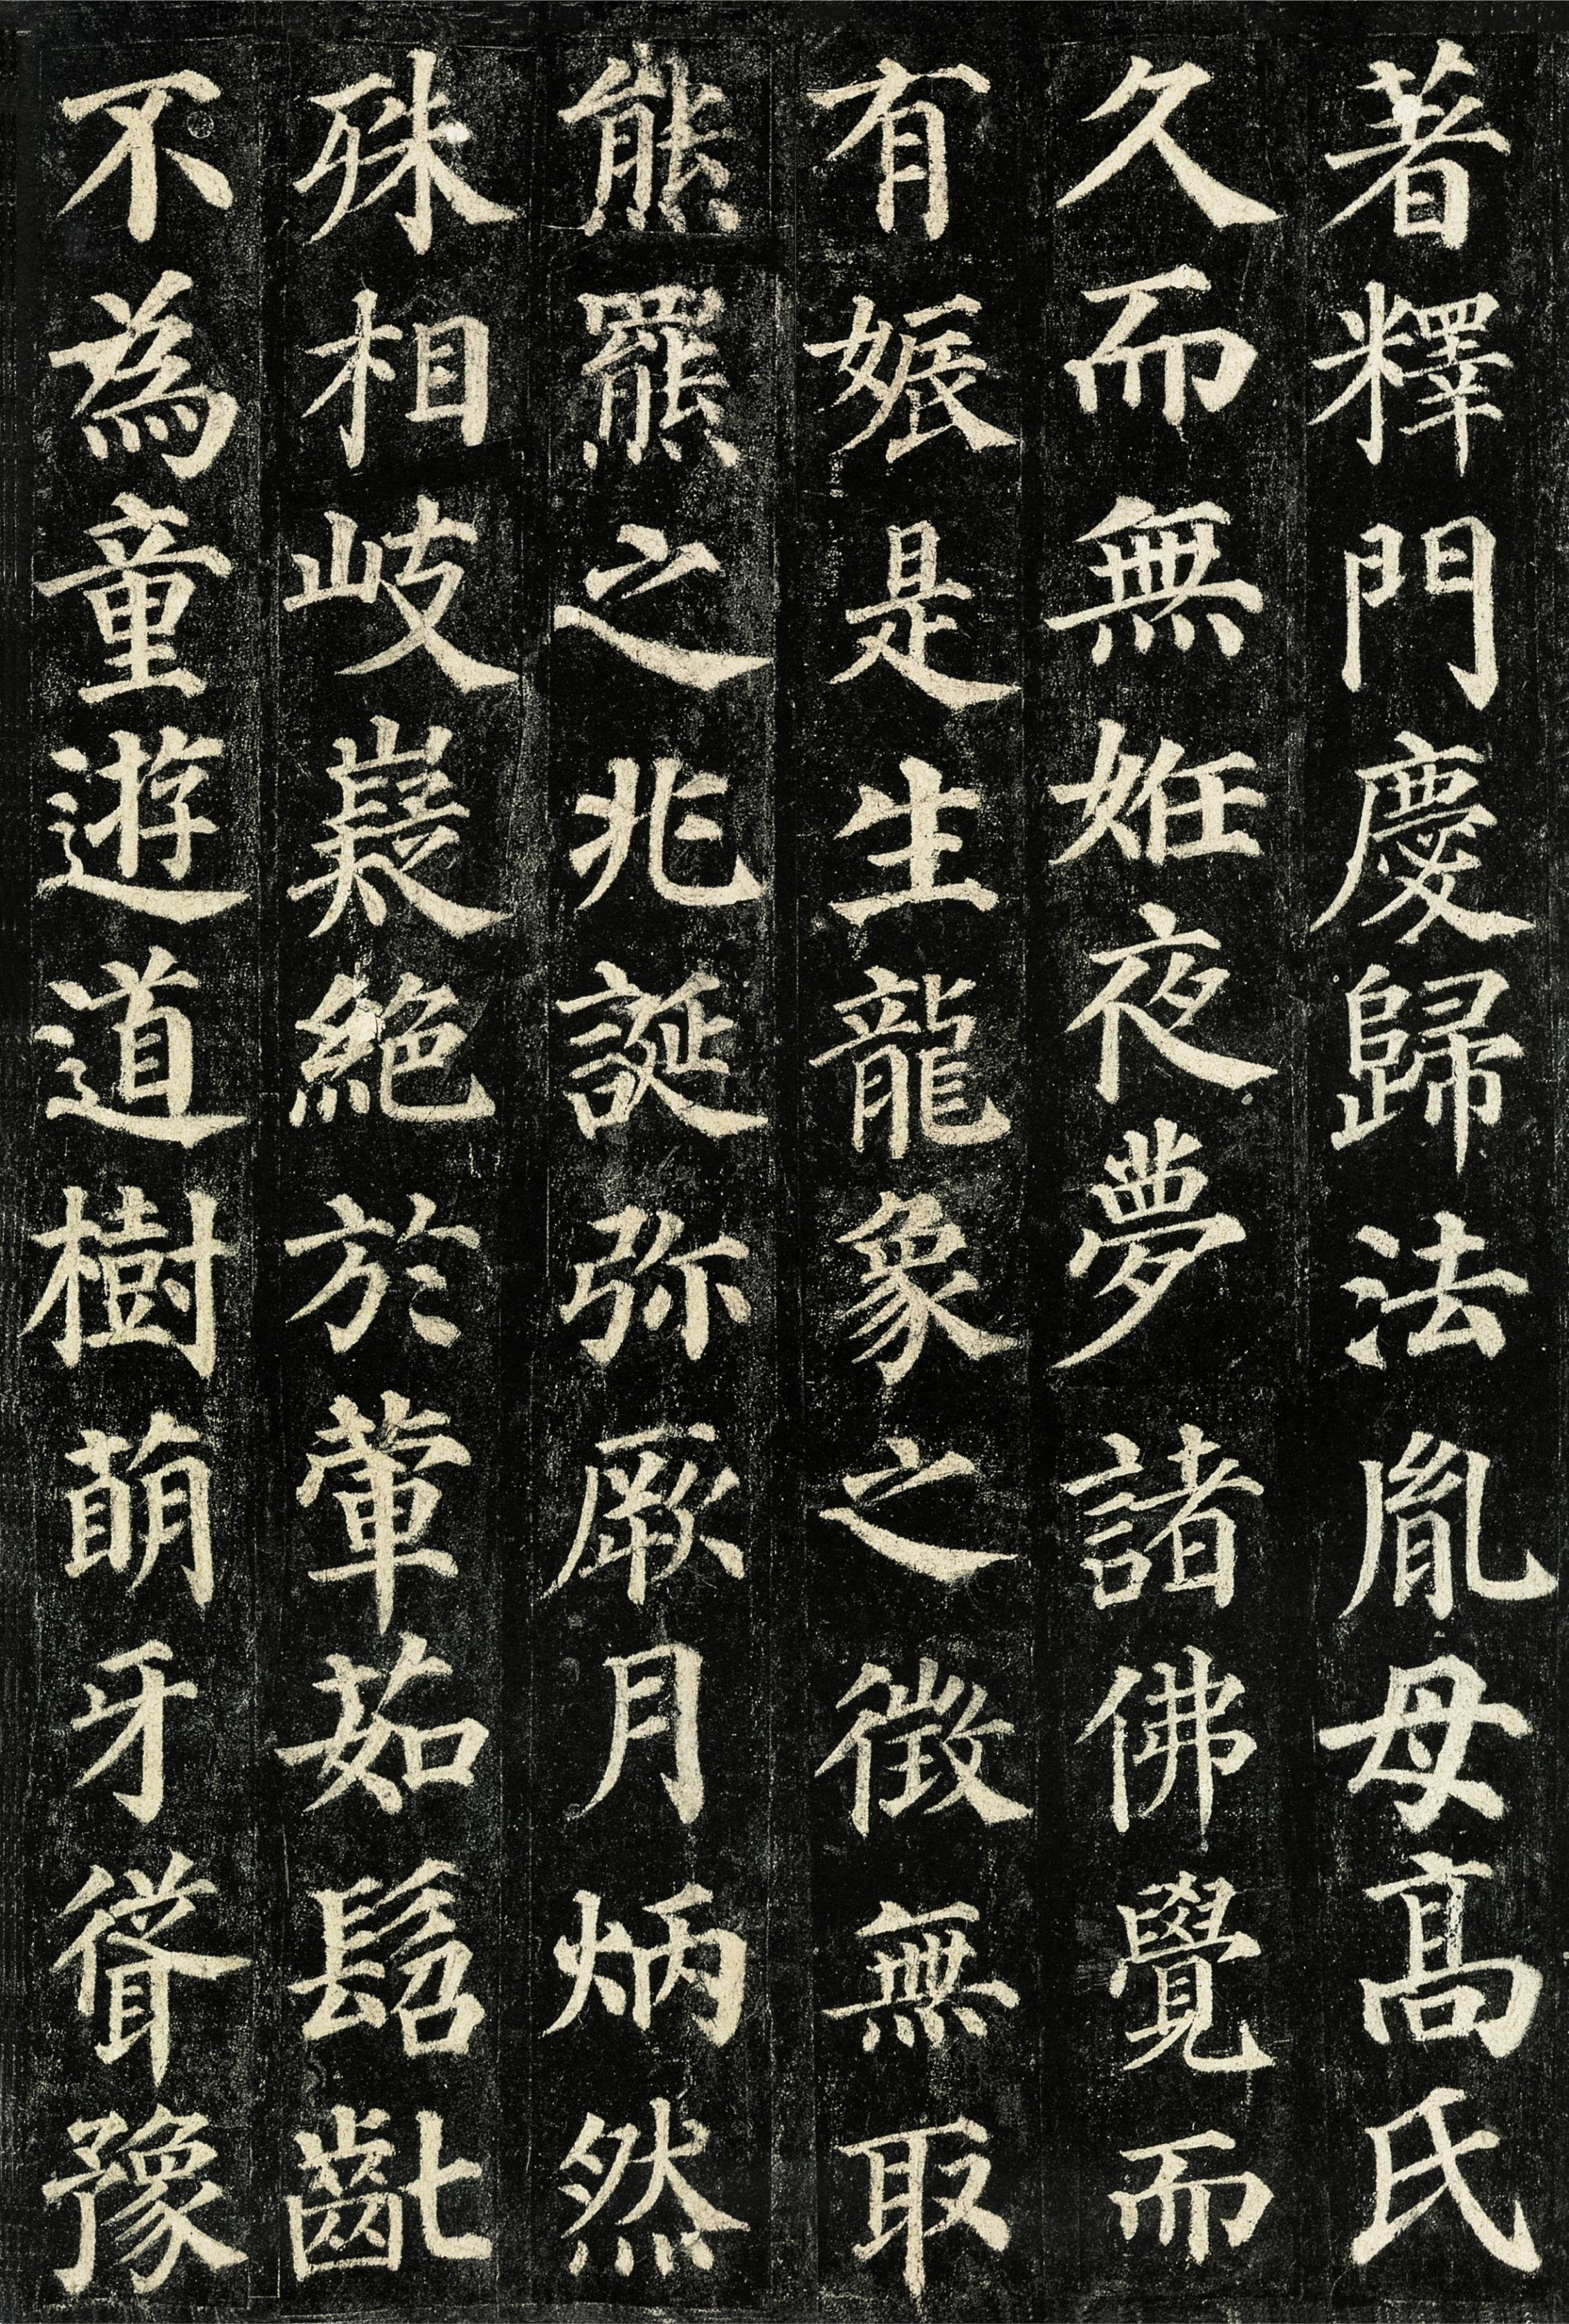 著釋門慶歸法胤母髙氏
久而無姙夜夢諸佛覺而
有娠是生龍象之徵無取
熊羆之兆誕弥厥月炳然
殊相岐嶷絶於葷茹髫齔
不為童遊道樹萌牙聳豫